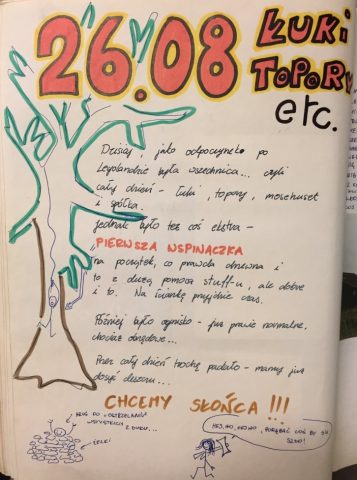 26.08 ŁUKI
TOPORY
etc.
Dzisiaj, jako odpoczynek po
Legolandzie była wszechnica... czyli
cały dzień - łuki, topory, moschuset
i spółka.
Jednak było też coś ekstra -
PIERWSZA WSPINACZKA
na początek, co prawda drzewna i
to z dużą pomocą stuff-u, ale dobre
i to. Na ściankę przyjdzie czas.
Później było ognisko - już prawie normalne,
chociaż obrzędowe...
Przez cały dzień trochę padało - mamy już
dosyć deszczu...
CHCEMY SŁOŃCA !!!
KRÓL DO
WSZYSTKICH
Z ŁUKU...
ŻELKI
HEJ, HO, HEJ HO, PORĄBAĆ COŚ BY SIĘ
SZŁO!